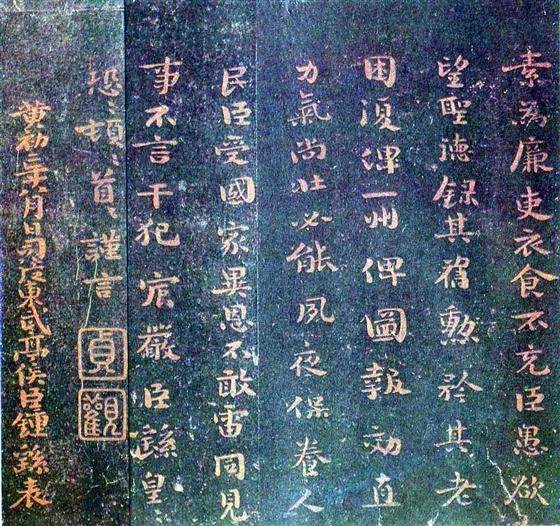 素為廉吏衣食不充臣愚欲
望聖德錄其舊勳矜其老
困復俾一州俾圖報効直
力氣尚壯必能夙夜保養人
民臣受國家異恩不敢雷同見
事不言干犯宸嚴臣繇皇〻
恐〻頓〻首〻謹言
貞觀
黃初二年八月日司徒東武亭侯臣鍾繇表